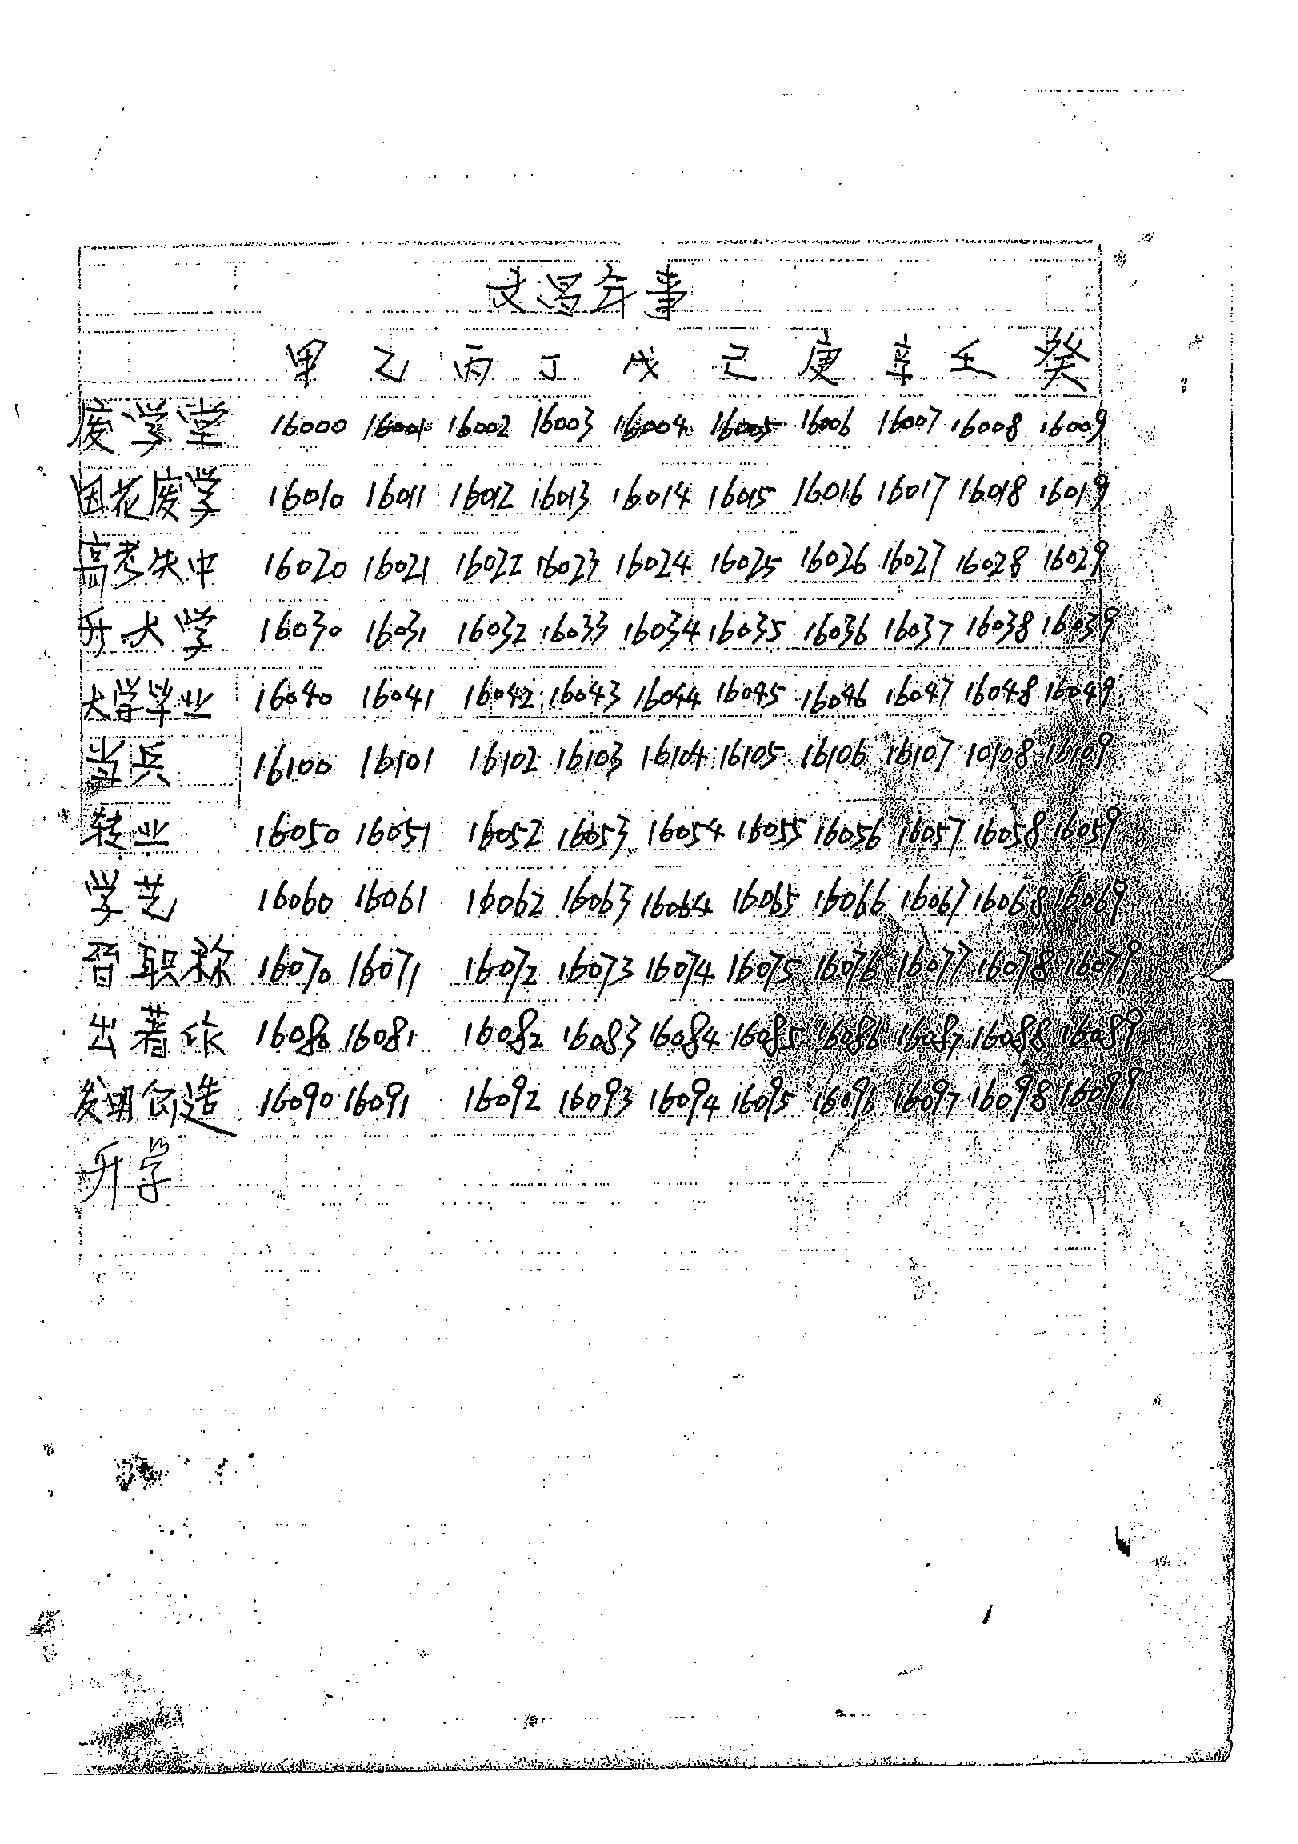 文昌年事
甲 乙 丙 丁 戊 己 庚 辛 壬 癸
废学堂 16000 16001 16002 16003 16004 16005 16006 16007 16008 16009
因花废学 16010 16011 16012 16013 16014 16015 16016 16017 16018 16019
高考失中 16020 16021 16022 16023 16024 16025 16026 16027 16028 16029
升大学 16030 16031 16032 16033 16034 16035 16036 16037 16038 16039
大学毕业 16040 16041 16042 16043 16044 16045 16046 16047 16048 16049
当兵 16100 16101 16102 16103 16104 16105 16106 16107 10108 16109
转业 16050 16051 16052 16053 16054 16055 16056 16057 16058 16059
学艺 16060 16061 16062 16063 16064 16065 16066 16067 16068 16069
晋职称 16070 16071 16072 16073 16074 16075 16076 16077 16078 16079
出著作 16080 16081 16082 16083 16084 16085 16086 16087 16088 16089
发明创造 16090 16091 16092 16093 16094 16095 16096 16097 16098 16099
升学